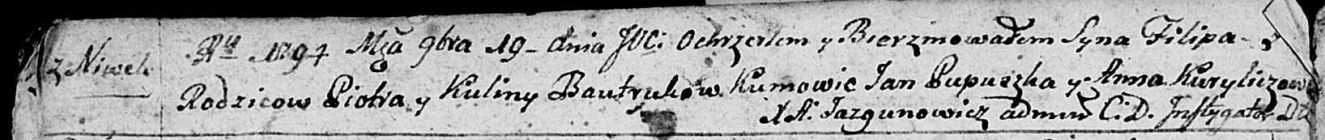 z Niwek
Rku 1794 Mca 9bra 19 - dnia JUC: Ochrzciłem y Bierzmowałem Syna Filipa -
Rodzicow Piotra y Kuliny Bautrukow. Kumowie Jan Pupuszka y Anna Kuryliczowa
X A: Jazgunowicz admin C: D. Instygator